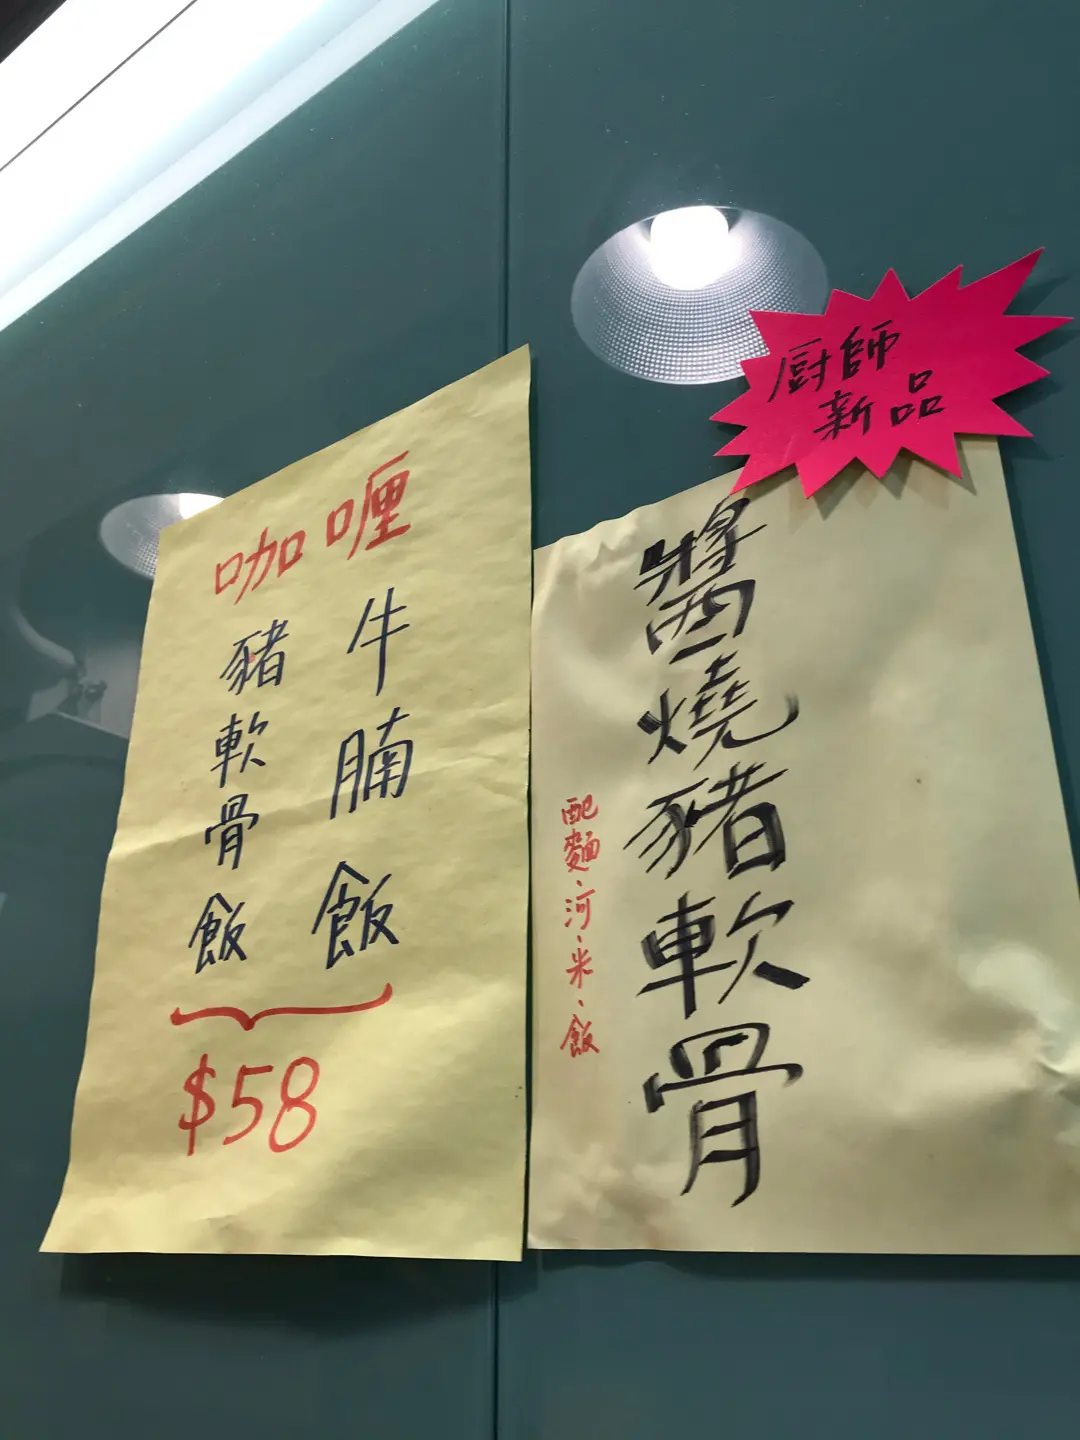 咖喱
牛腩飯
豬軟骨飯
$58
廚師
新品
醬燒豬軟骨
配麵、河、米、飯